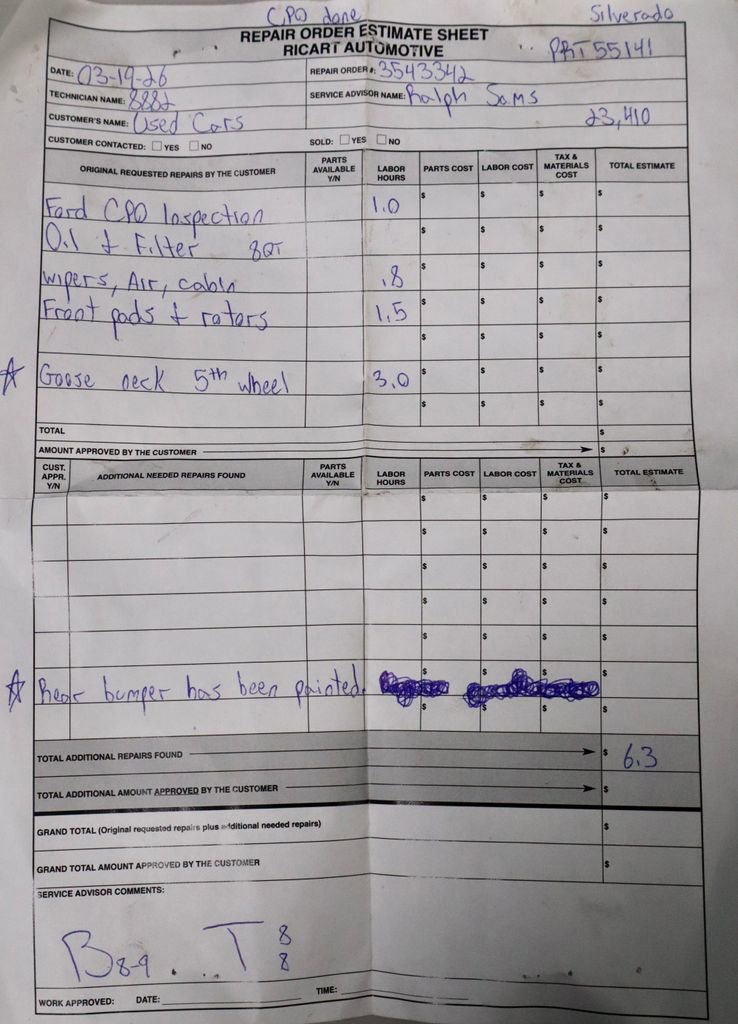 CPO done
Silverado
REPAIR ORDER ESTIMATE SHEET
RICART AUTOMOTIVE
PRT 55141
DATE: 03-19-26
REPAIR ORDER #: 3543342
TECHNICIAN NAME: 8882
SERVICE ADVISOR NAME: Ralph Sams
CUSTOMER'S NAME: Used Cars
23,410
CUSTOMER CONTACTED: ☐ YES ☐ NO
SOLD: ☐ YES ☐ NO
ORIGINAL REQUESTED REPAIRS BY THE CUSTOMER PARTS AVAILABLE Y/N LABOR HOURS PARTS COST LABOR COST TAX & MATERIALS COST TOTAL ESTIMATE
Ford CPO Inspection 1.0 $ $ $ $
Oil & Filter 8QT $ $ $ $
wipers, Air, cabin .8 $ $ $ $
Front pads & rotors 1.5 $ $ $ $
$ $ $ $
☆ Goose neck 5th wheel 3.0 $ $ $ $
$ $ $ $
TOTAL $
AMOUNT APPROVED BY THE CUSTOMER $
CUST. APPR. Y/N ADDITIONAL NEEDED REPAIRS FOUND PARTS AVAILABLE Y/N LABOR HOURS PARTS COST LABOR COST TAX & MATERIALS COST TOTAL ESTIMATE
$ $ $ $
$ $ $ $
$ $ $ $
$ $ $ $
$ $ $ $
☆ Rear bumper has been painted. $ $ $ $
$ $ $ $
TOTAL ADDITIONAL REPAIRS FOUND $ 6.3
TOTAL ADDITIONAL AMOUNT APPROVED BY THE CUSTOMER $
GRAND TOTAL (Original requested repairs plus additional needed repairs) $
GRAND TOTAL AMOUNT APPROVED BY THE CUSTOMER $
SERVICE ADVISOR COMMENTS:
B 8-9 T 8
8
WORK APPROVED: DATE: TIME: